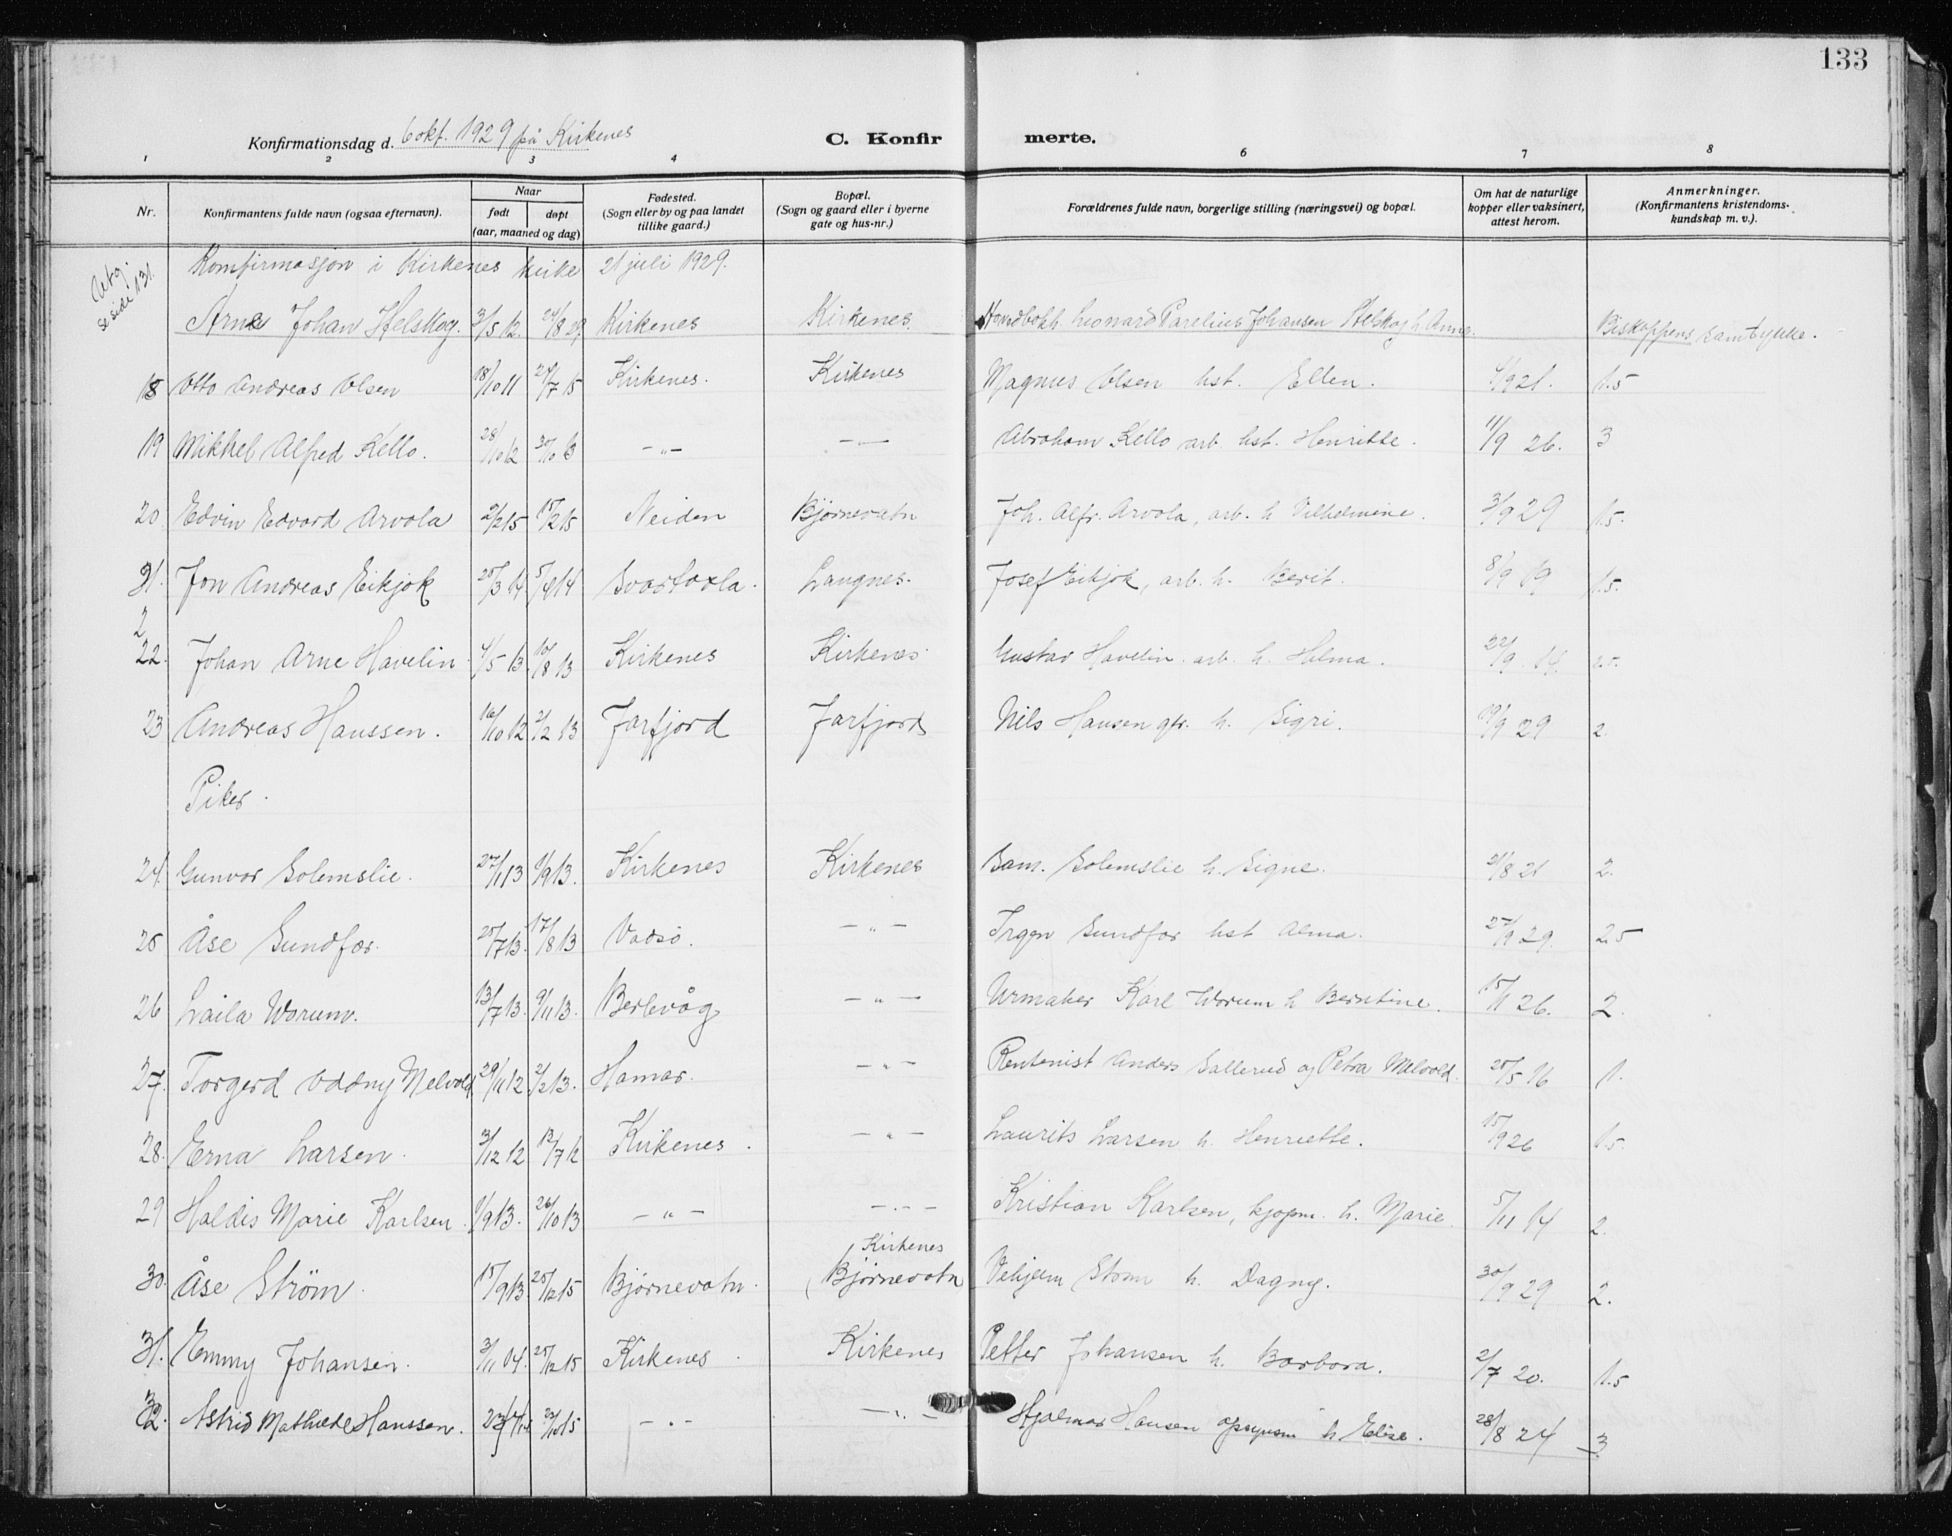 133
Konfirmationsdag d. 6 okt. 1929 på Kirkenes C. Konfir merte.
1 2 3 4 6 7 8
Nr. Konfirmantens fulde navn (ogsaa efternavn). Naar født døpt (aar, maaned og dag) Fødested. (Sogn eller by og paa landet tillike gaard.) Bopæl. (Sogn og gaard eller i byerne gate og hus-nr.) Forældrenes fulde navn, borgerlige stilling (næringsvei) og bopæl. Om hat de naturlige kopper eller vaksinert, attest herom. Anmerkninger. (Konfirmantens kristendoms-kundskap m. v.).
Konfirmasjon i Kirkenes kirke 21 juli 1929.
se side 131.
Arne Johan Stelskog. 3/5 12. 24/8 29. Kirkenes Kirkenes Leonard Parelius Johansen Stelskog h. Anne. Biskoppens samtykke.
18 Otto Andreas Olsen 18/10 11 24/7 15 Kirkenes. Kirkenes Magnus Olsen hst. Ellen. 4/9 21. 1.5
19 Mikkel Alfred Kello. 28/10 12 30/10 13 -"- -"- Abraham Kello arb. hst. Henritte. 11/9 26. 3
20 Edvin Edvard Arvola 2/2 15 15/2 15 Neiden Bjørnevatn Joh. Alfr. Arvola, arb. h Vilhelmine. 3/9 29 1.5.
21. Jon Andreas Eikjok 25/3 14 5/4 14 Svartaxla. Langnes. Josef Eikjok, arb. h. Berit. 8/9 19 1.5.
22. Johan Arne Havelin 4/5 13. 10/8 13 Kirkenes Kirkenes. Gustav Havelin. arb. h. Hilma. 22/9 14. 2.5.
23 Andreas Hanssen. 16/10 12 2/2 13 Jarfjord Jarfjord Nils Hansen gbr. h. Sigri. 19/9 29 2.
Piker.
24. Gunvor Solemslie. 27/1 13 1/9 13. Kirkenes Kirkenes Sam. Solemslie h. Signe. 21/8 21 2.
25 Åse Sundfær. 25/7 13. 17/8 13 Vadsø. -"- Sundfær hst Alma. 27/9 29. 2.5
26 Laila Worum. 13/7 13. 9/11 13. Berlevåg -"- Urmaker Karl Worum h Berntine. 15/1 26. 2.
27. Torgerd Oddny Melvold 29/11 12. 2/2 13. Hamar. -"- Rentenist Anders Sallerud og Petra Melvold. 25/5 16 1.
28. Erna Larsen. 3/12 12 13/7 12 Kirkenes. -"- Laurits Larsen h. Henriette. 15/9 26 1.5.
29 Haldis Marie Karlsen. 1/9 13. 26/10 13 -"- -"- Kristian Karlsen, kjøpm. h. Marie. 5/11 14 2.
30. Åse Strøm. 15/9 13. 25/12 15 Bjørnevatn. Kirkenes (Bjørnevatn) Vilhjelm Strøm h. Dagny. 30/9 29 2.
31. Emmy Johansen. 3/11 04. 25/12 15 Kirkenes. Kirkenes Petter Johansen h. Barbora. 2/7 20. 1.5
32. Astrid Mathilde Hanssen. -"- -"- Hjalmar Hansen opsynsm h Elise. 28/8 24 3.